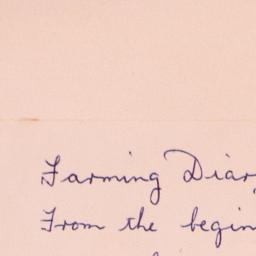 Farming Diar
From the begin